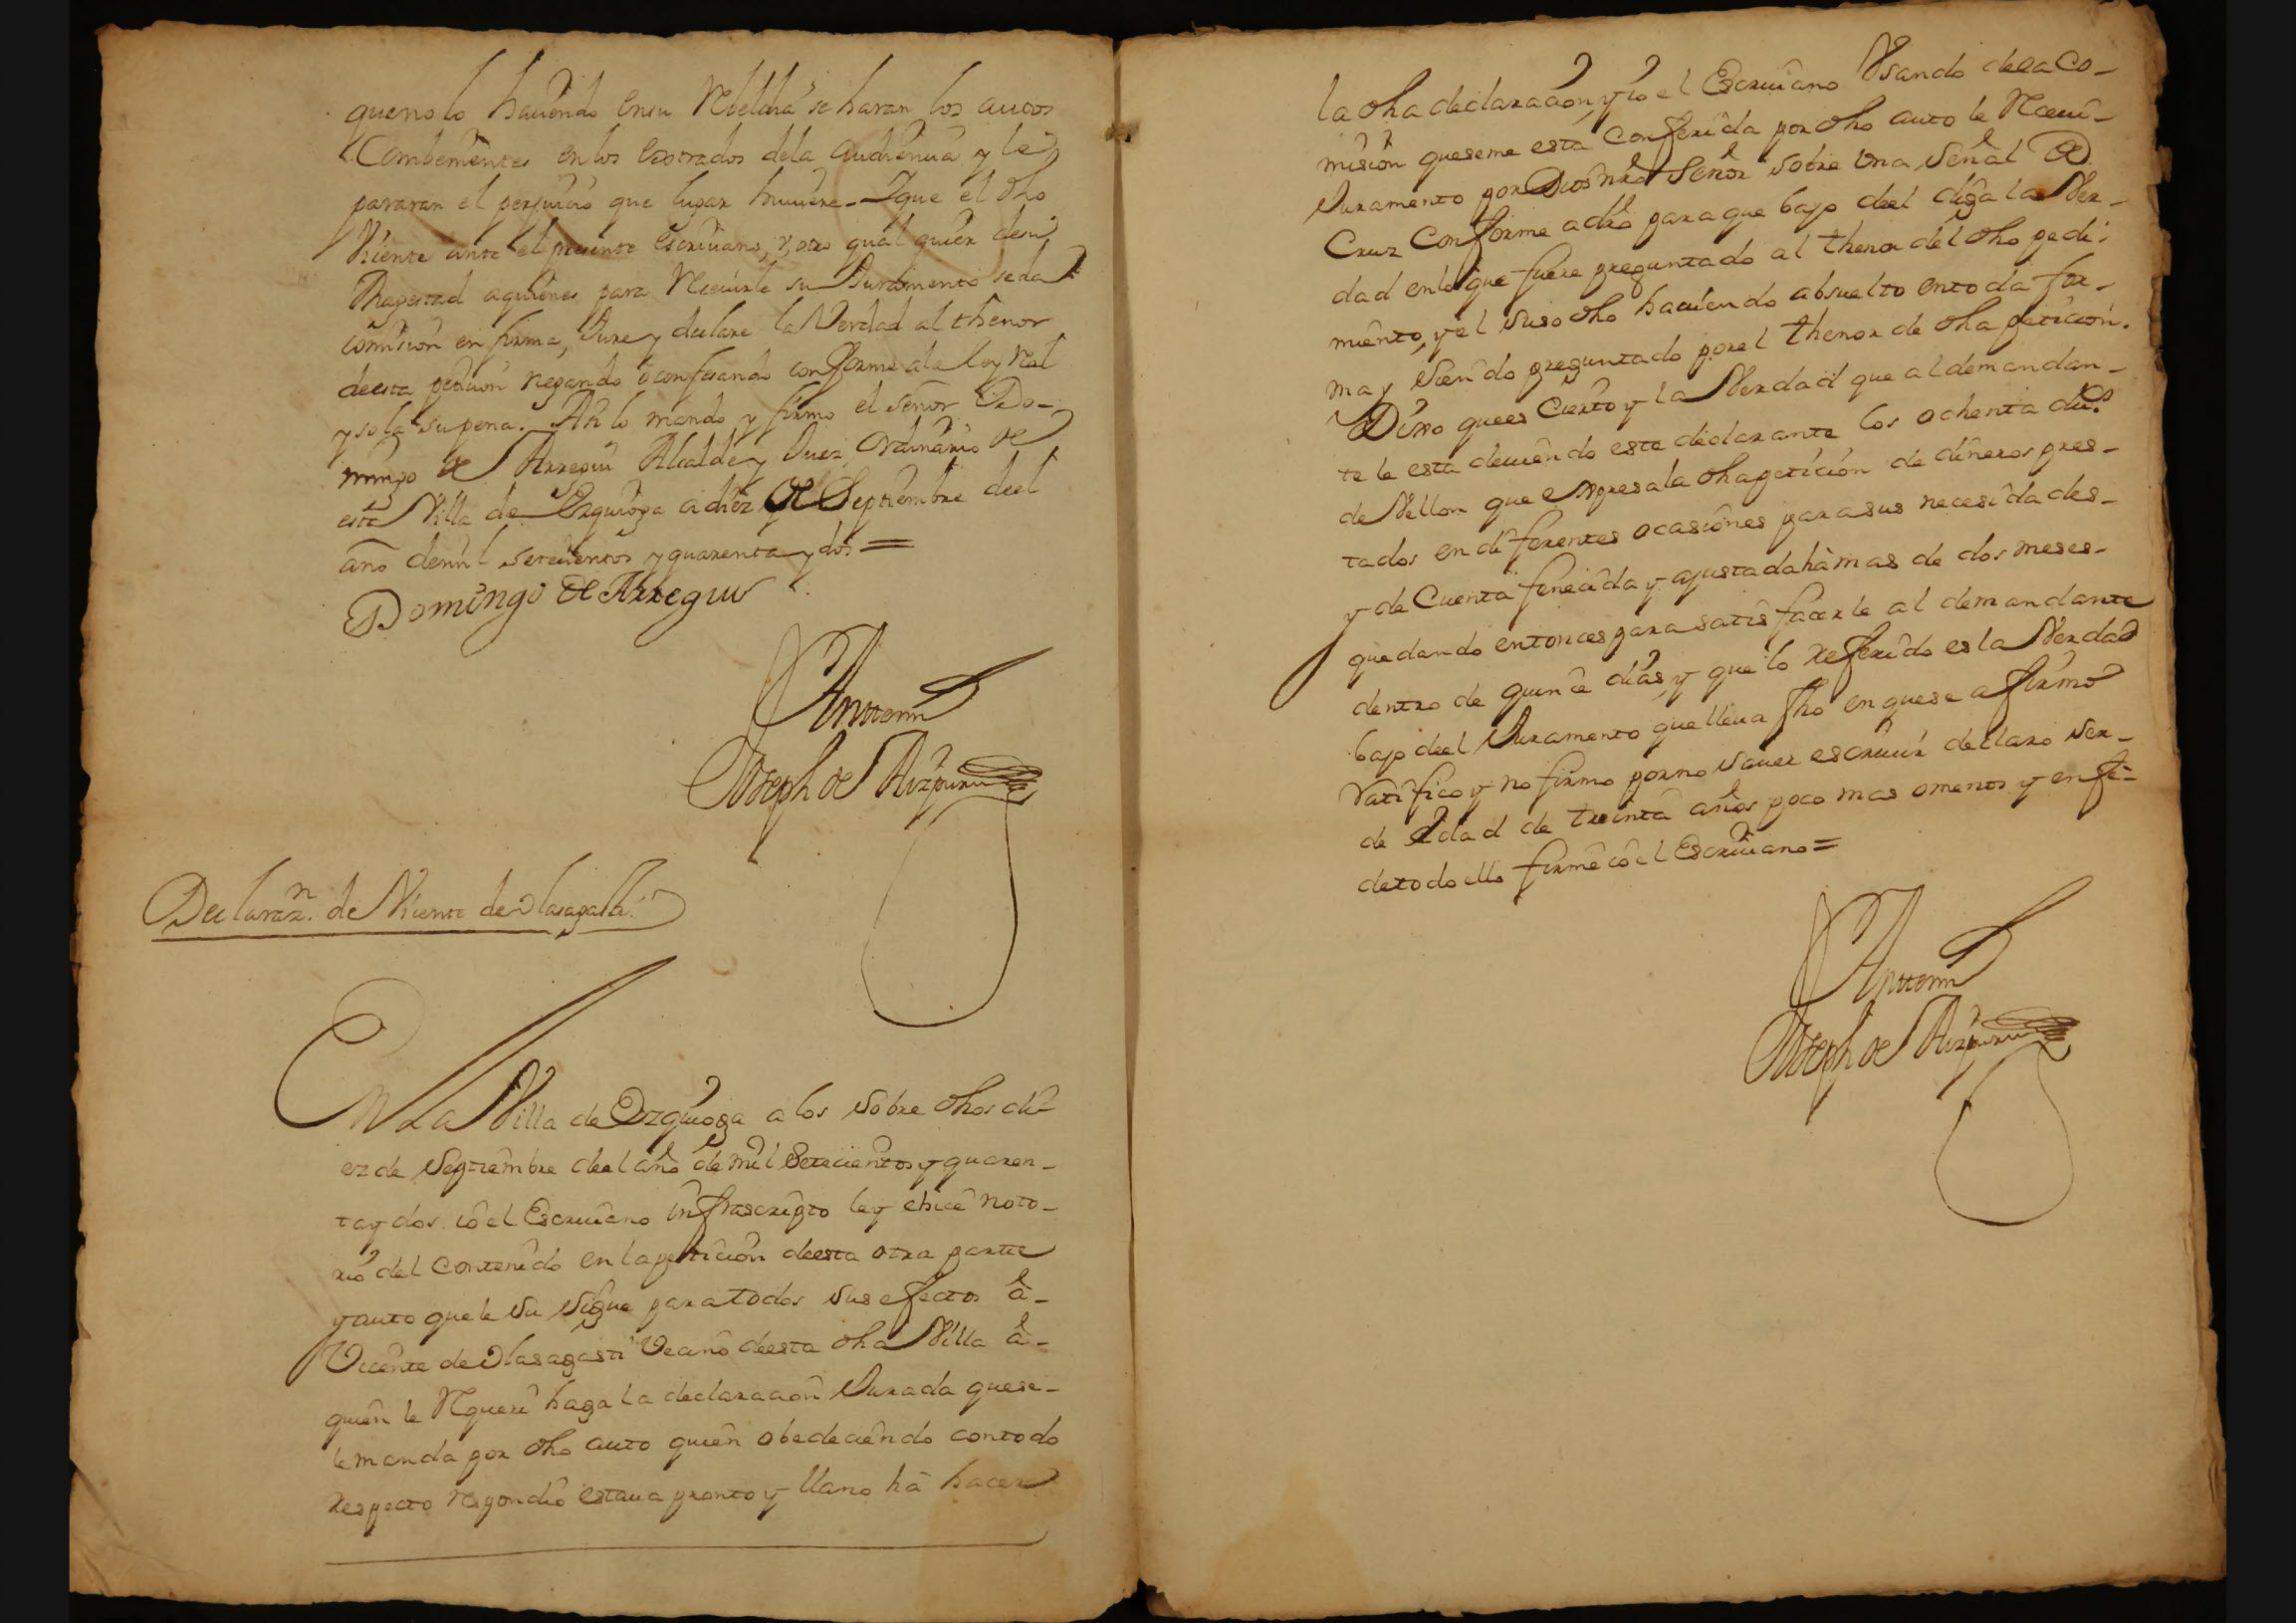 queno lo haviendo en su Rebeldia se haran los autos
Combenientes en los Estrados dela Audiencia y le
pararan el perjuicio que lugar huviere. Y que el dho
Vicente ante el presente Escrivano, y, otro qual quier de su
Magestad aquienes para Recivirle su Juramento se da
comision en forma, Jure y declare la Verdad al thenor
deesta peticion negando ò confesando conforme ala ley Real
y so la su pena. Asi lo mando y firmo el señor Do-
mingo de Arregui Alcalde y Juez Ordinario de
esta Villa de Ezquioga a diez de Septiembre deel
año demil setecientos y quarenta y dos =
Domingo de Arregui
Antemi
Joseph de Aizpuru
Declarazn. de Vicente de Olasagasti
En La Villa de Ezquioga a los sobre dhos di-
ez de Septiembre deel año de mil Setecientos y quaren-
ta y dos. io el Escrivano infrascripto ley e hice noto-
rio del contenido en la peticion deesta otra parte
y auto que le su sigue para todos sus efectos à-
Vicente de Olasagasti Vecino deesta dha Villa à-
quien le Requeri haga la declaracion Jurada que se-
le manda por dho auto quien obedeciendo con todo
respecto respondio estava pronto y llano hà hacer
la dha declaracion, y io el Escrivano Usando dela Co-
mision que se me esta Conferida por dho auto le Recivi-
Juramento por Dios nro Señor sobre una Señal de
Cruz Conforme a dro para que bajo deel diga la Ver-
dad en lo que fuere preguntado al thenor del dho pedi-
miento, y el suso dho haviendo absuelto en toda for-
ma y siendo preguntado por el thenor de dha peticion.
Dixo que es Cierto y la Verdad que al demandan-
te le esta deviendo este declarante los ochenta dus.
de Vellon que expresa la dha peticion de dineros pres-
tados en diferentes ocasiones para sus necesidades-
y de Cuenta fenecida y ajustada hà mas de dos meses-
quedando entonces para satisfacerle al demandante
dentro de quince dias, y que lo referido es la Verdad
bajo deel Juramento que lleva fho en que se afirmò
Ratifico y no firmo por no saver escrivir declaro ser-
de edad de treinta años poco mas o menos y en fè-
de todo ello firmè io el Escrivano =
Antemi
Joseph de Aizpuru